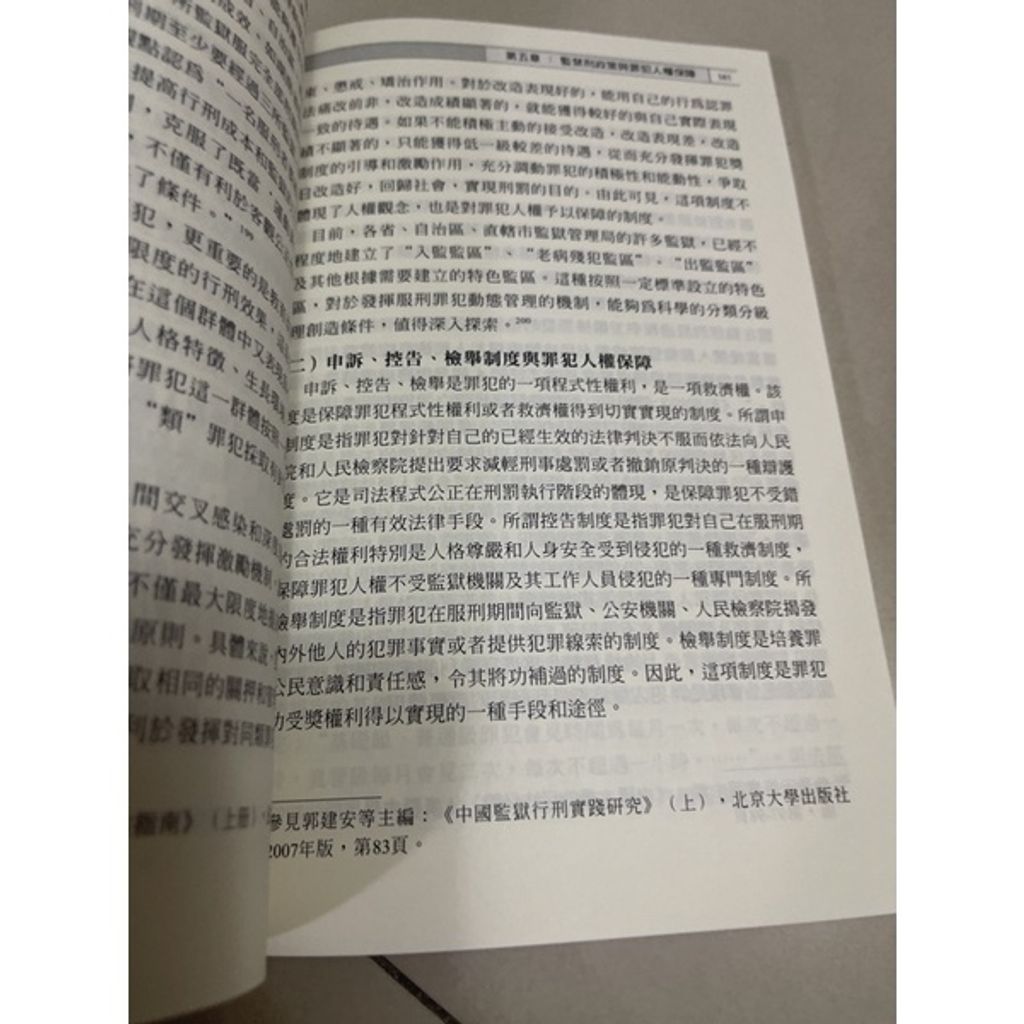 所監獄服完全部
周期至少要經過三所監
觀點認爲“一名服刑
提高行刑成本和監
，克服了既當
不僅有利於客觀公
了條件。”199
犯，更重要的是教
限度的行刑效果，
在這個群體中又
人格特徵、生長環
罪犯這一群體按照
“類”罪犯採取
間交叉感染和深度
充分發揮激勵機制
不僅最大限度地
原則。具體來說，
取相同的關押和
利於發揮對同類
指南》（上冊）
第五章｜監獄行刑政策與罪犯人權保障
束、懲戒、矯治作用。對於改造表現好的，能用自己的行爲認罪
法痛改前非，改造成績顯著的，就能獲得較好的與自己實際表現
一致的待遇。如果不能積極主動的接受改造，改造表現差，改造
績不顯著的，只能獲得低一級較差的待遇，從而充分發揮罪犯獎
制度的引導和激勵作用，充分調動罪犯的積極性和能動性，爭取
日改造好，回歸社會，實現刑罰的目的。由此可見，這項制度不
體現了人權觀念，也是對罪犯人權予以保障的制度。
目前，各省、自治區、直轄市監獄管理局的許多監獄，已經不
程度地建立了“入監監區”、“老病殘犯監區”、“出監監區”
及其他根據需要建立的特色監區。這種按照一定標準設立的特色
區，對於發揮服刑罪犯動態管理的機制，能夠爲科學的分類分級
理創造條件，值得深入探索。200
二）申訴、控告、檢舉制度與罪犯人權保障
申訴、控告、檢舉是罪犯的一項程式性權利，是一項救濟權。該
度是保障罪犯程式性權利或者救濟權得到切實實現的制度。所謂申
制度是指罪犯對針對自己的已經生效的法律判決不服而依法向人民
院和人民檢察院提出要求減輕刑事處罰或者撤銷原判決的一種辯護
度。它是司法程式公正在刑罰執行階段的體現，是保障罪犯不受錯
處罰的一種有效法律手段。所謂控告制度是指罪犯對自己在服刑期
的合法權利特別是人格尊嚴和人身安全受到侵犯的一種救濟制度，
保障罪犯人權不受監獄機關及其工作人員侵犯的一種專門制度。所
檢舉制度是指罪犯在服刑期間向監獄、公安機關、人民檢察院揭發
內外他人的犯罪事實或者提供犯罪線索的制度。檢舉制度是培養罪
公民意識和責任感，令其將功補過的制度。因此，這項制度是罪犯
功受獎權利得以實現的一種手段和途徑。
參見郭建安等主編：《中國監獄行刑實踐研究》（上），北京大學出版社
2007年版，第83頁。